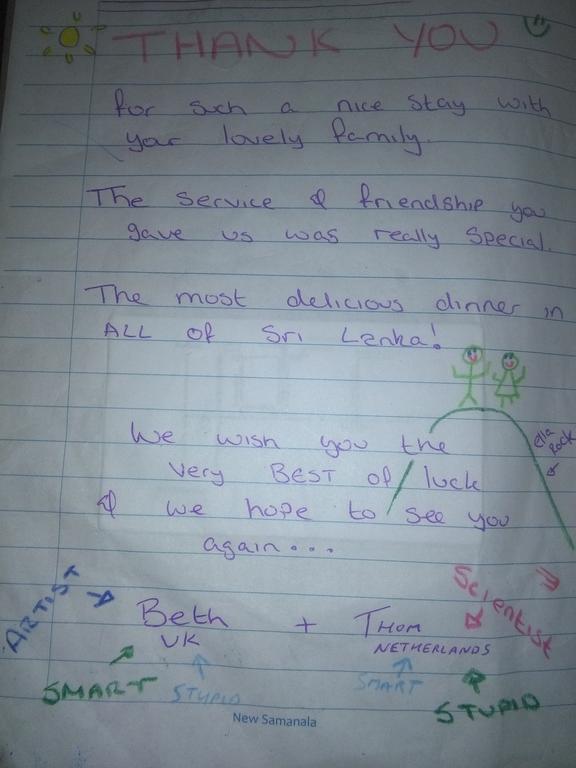 THANK YOU
for such a nice stay with
your lovely family.
The service & friendship you
gave us was really special.
The most delicious dinner in
ALL of Sri Lenka!
We wish you the
very BEST of luck
& we hope to see you
again...
Rock
ARTIST
Scientist
Beth + THOM
UK NETHERLANDS
SMART STUPID SMART STUPID
New Samanala